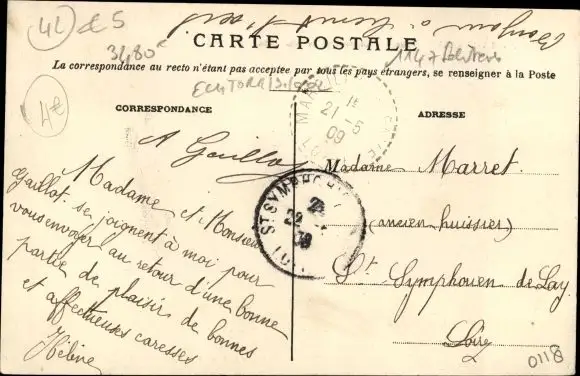 42 d 5
3480
CARTE POSTALE
La correspondance au recto n'étant pas acceptée par tous les pays étrangers, se renseigner à la Poste
4€
CORRESPONDANCE
ADRESSE
21 -5
09
A Gaillot
Madame et Monsieur
Gaillot se joignent à moi pour
vous envoyer au retour d'une bonne
partie de plaisir de bonnes
et affectueuses caresses
Hélène
ST SYMPHORIEN
22
Madame Marret
(ancien huissier)
St Symphorien de Lay
Loire
0118